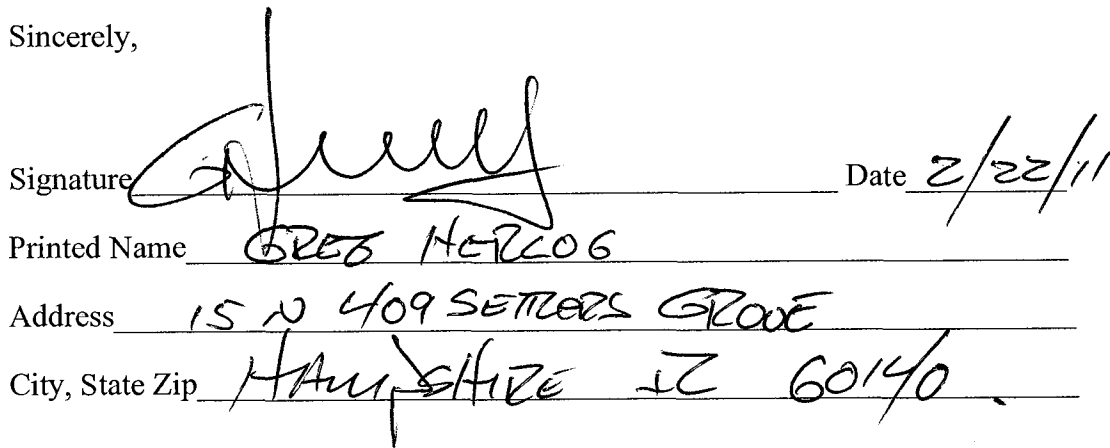 Sincerely,
Signature Date 2/22/11
Printed Name GREG HERCOG
Address 15 N 409 SETTLERS GROVE
City, State Zip HAMPSHIRE IL 60140